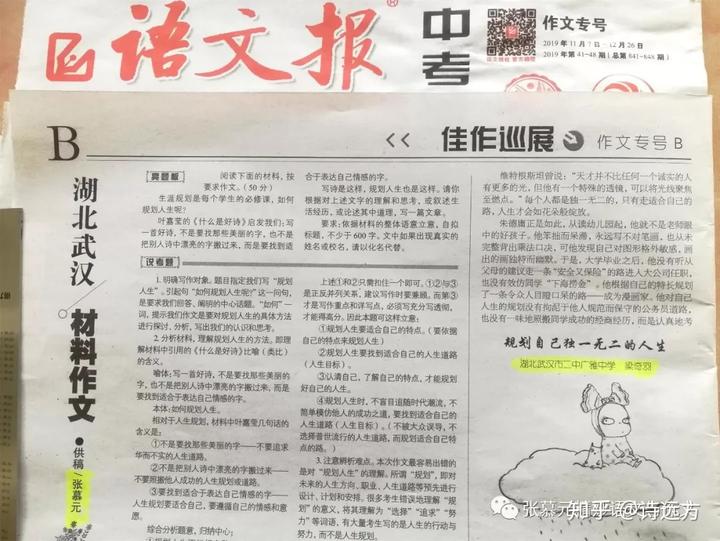 语文报®
中考
作文专号
2019年11月7日-12月26日
2019年第41-48期(总第841-848期)
B
<< 佳作巡展 作文专号B
湖北武汉
材料作文
●供稿/张慕元
真题板 阅读下面的材料,按
要求作文。(50分)
生涯规划是每个学生的必修课,如何
规划人生呢?
叶嘉莹的《什么是好诗》启发我们:写
一首好诗,不是要找那些美丽的字,也不是
把别人诗中漂亮的字搬过来,而是要找适
合于表达自己情感的字。
写诗是这样,规划人生也是这样。请你
根据对上述文字的理解和思考,或叙述生
活经历,或论述其中道理,写一篇文章。
要求:依据材料的整体语意立意,自拟
标题,不少于600字,文中如果出现真实的
姓名或校名,请以化名代替。
说考题
1.明确写作对象。题目指定我们写“规划
人生”。引起句“如何规划人生呢?”这一问句,
是要求我们回答、阐明的中心话题。“如何”一
词,提示我们作文是要对规划人生的具体方法
进行探讨、分析,写出我们的认识和思考。
2.分析材料,理解规划人生的方法。即理
解材料中引用的《什么是好诗》比喻(类比)
的含义。
喻体:写一首好诗,不是要找那些美丽的
字,也不是把别人诗中漂亮的字搬过来,而是
要找到适合于表达自己情感的字。
本体:如何规划人生。
相对于人生规划,材料中叶嘉莹几句话的
含义是:
①不是要找那些美丽的字——不要追求
华而不实的人生道路。
②不是把别人诗中漂亮的字搬过来——
不要照搬他人成功的人生规划或道路。
③要找到适合于表达自己情感的字——
人生规划要适合自己,要遵循自己的情感和意
愿。
综合分析题意,归纳中心:
上述①和②只需扣住一个即可。①②与③
是正反并列关系,建议写作时要兼顾,而第③
才是写作重点和详写点,必须写充分写透彻,
才能得高分。因此本题可这样立意:
①规划人生要适合自己的特点。(要依据
自己的特点来规划人生)
②规划人生要找到适合自己的人生道路
(人生目标)。
③认清自己,了解自己的特点,才能规划
好自己的人生。
④规划人生时,不盲目追随时代潮流,不
简单模仿他人的成功之道,要找到适合自己的
人生道路(人生目标)。(不被大众误导,不
选择普世流行的人生道路,而规划适合自己特
点的路。)
3.注意辨析难点。本次作文最容易出错的
是对“规划人生”的理解。所谓“规划”,即对
未来的人生方向、职业、人生道路等预先进行
设计、计划和安排。很多考生错误地理解“规
划”的意义,将其理解为“选择”“追求”“努
力”等词语,有大量考生写的是人生的行动与
努力,而不是人生规划。
维特根斯坦曾说:“天才并不比任何一个诚实的人
有更多的光,但他有一个特殊的透镜,可以将光线聚焦
至燃点。”每个人都是独一无二的,只有走适合自己的
路,人生才会如花朵般绽放。
朱德庸正是如此,从读幼儿园起,他就不是老师眼
中的好孩子。他笨拙而呆滞,永远写不对笔画,也从未
完整背出乘法口诀,可他发现自己对图形格外敏感,画
出的画独特而幽默。于是,大学毕业之后,他没有听从
父母的建议走一条“安全又保险”的路进入大公司任职,
也没有效仿同学“下海捞金”。他根据自己的特长规划
了一条令众人目瞪口呆的路——成为漫画家。他对自己
人生的规划没有拘泥于他人规范而保守的公务员道路,
也没有一味地照搬同学成功的经商经历,而是认真地考
规划自己独一无二的人生
湖北武汉市二中广雅中学 梁奇羽
知乎 @诗远方